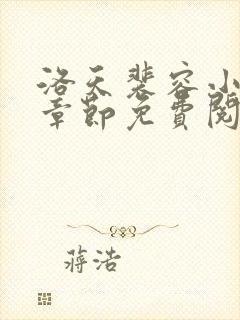 洛天裴容小
章節免費閱
蔣浩